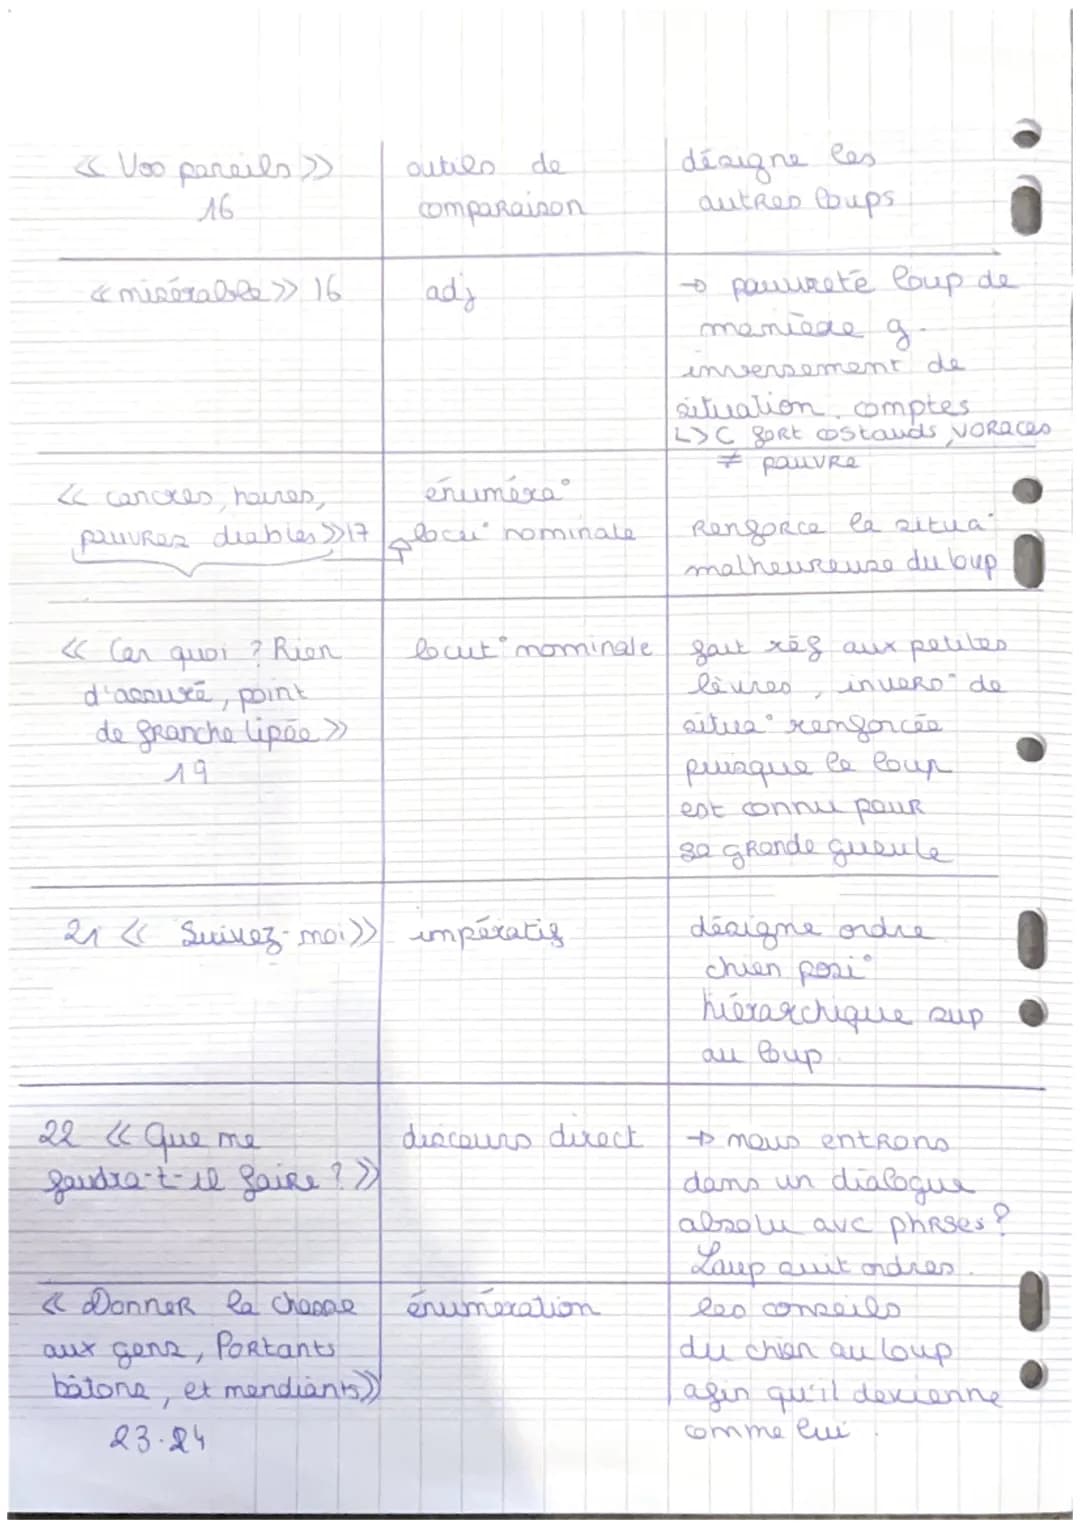 « Vos pareils »
16
outils de
comparaison
désigne les
autres loups
« misérable » 16
adj
→ pauvreté loup de
manière g.
inversement de
situation, comptes
↳ C fort costauds, voraces
≠ pauvre
« cancres, haires,
pauvres diables » 17
énuméra°
locu° nominale
Renforce la situa°
malheureuse du loup
« Car quoi ? Rien
d'assuré, point
de franche lipée »
19
locut° nominale
fait réf aux petites
lèvres, invers° de
situa° renforcée
puisque le loup
est connu pour
sa grande gueule
21 « Suivez-moi »
impératif
désigne ordre
chien posi°
hiérarchique sup
au loup.
22 « Que me
faudra-t-il faire ? »
discours direct
→ nous entrons
dans un dialogue
absolu avc phrses ?
Loup suit ordres.
« Donner la chasse
aux gens, Portants
bâtons, et mendiants »
23.24
énumération
les conseils
du chien au loup
afin qu'il devienne
comme lui.